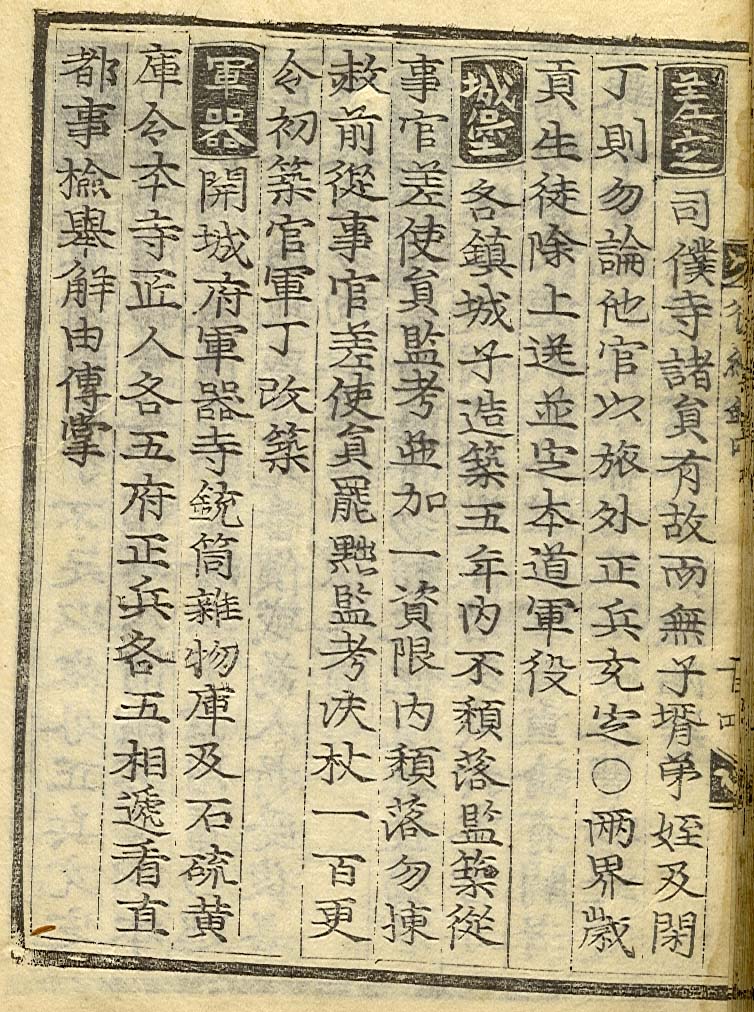 差定 司僕寺諸員有故而無子壻弟姪及閑
丁則勿論他官以旅外正兵充定○兩界歲
貢生徒除上送並定本道軍役
城堡 各鎭城子造築五年內不頹落監築從
事官差使員監考並加一資限內頹落勿揀
赦前從事官差使員罷黜監考决杖一百更
令初築官軍丁改築
軍器 開城府軍器寺銃筒雜物庫及石硫黃
庫令本寺匠人各五府正兵各五相遞看直
都事檢擧解由傳掌